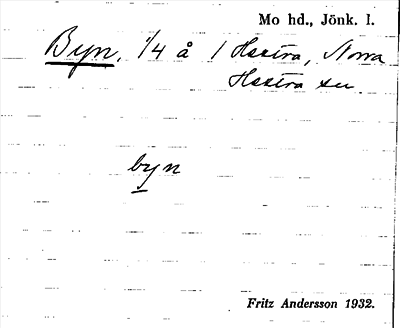 Mo hd., Jönk. l.
Byn, 1/4 å 1 Hestra, Norra
Hestra sn
byn
Fritz Andersson 1932.